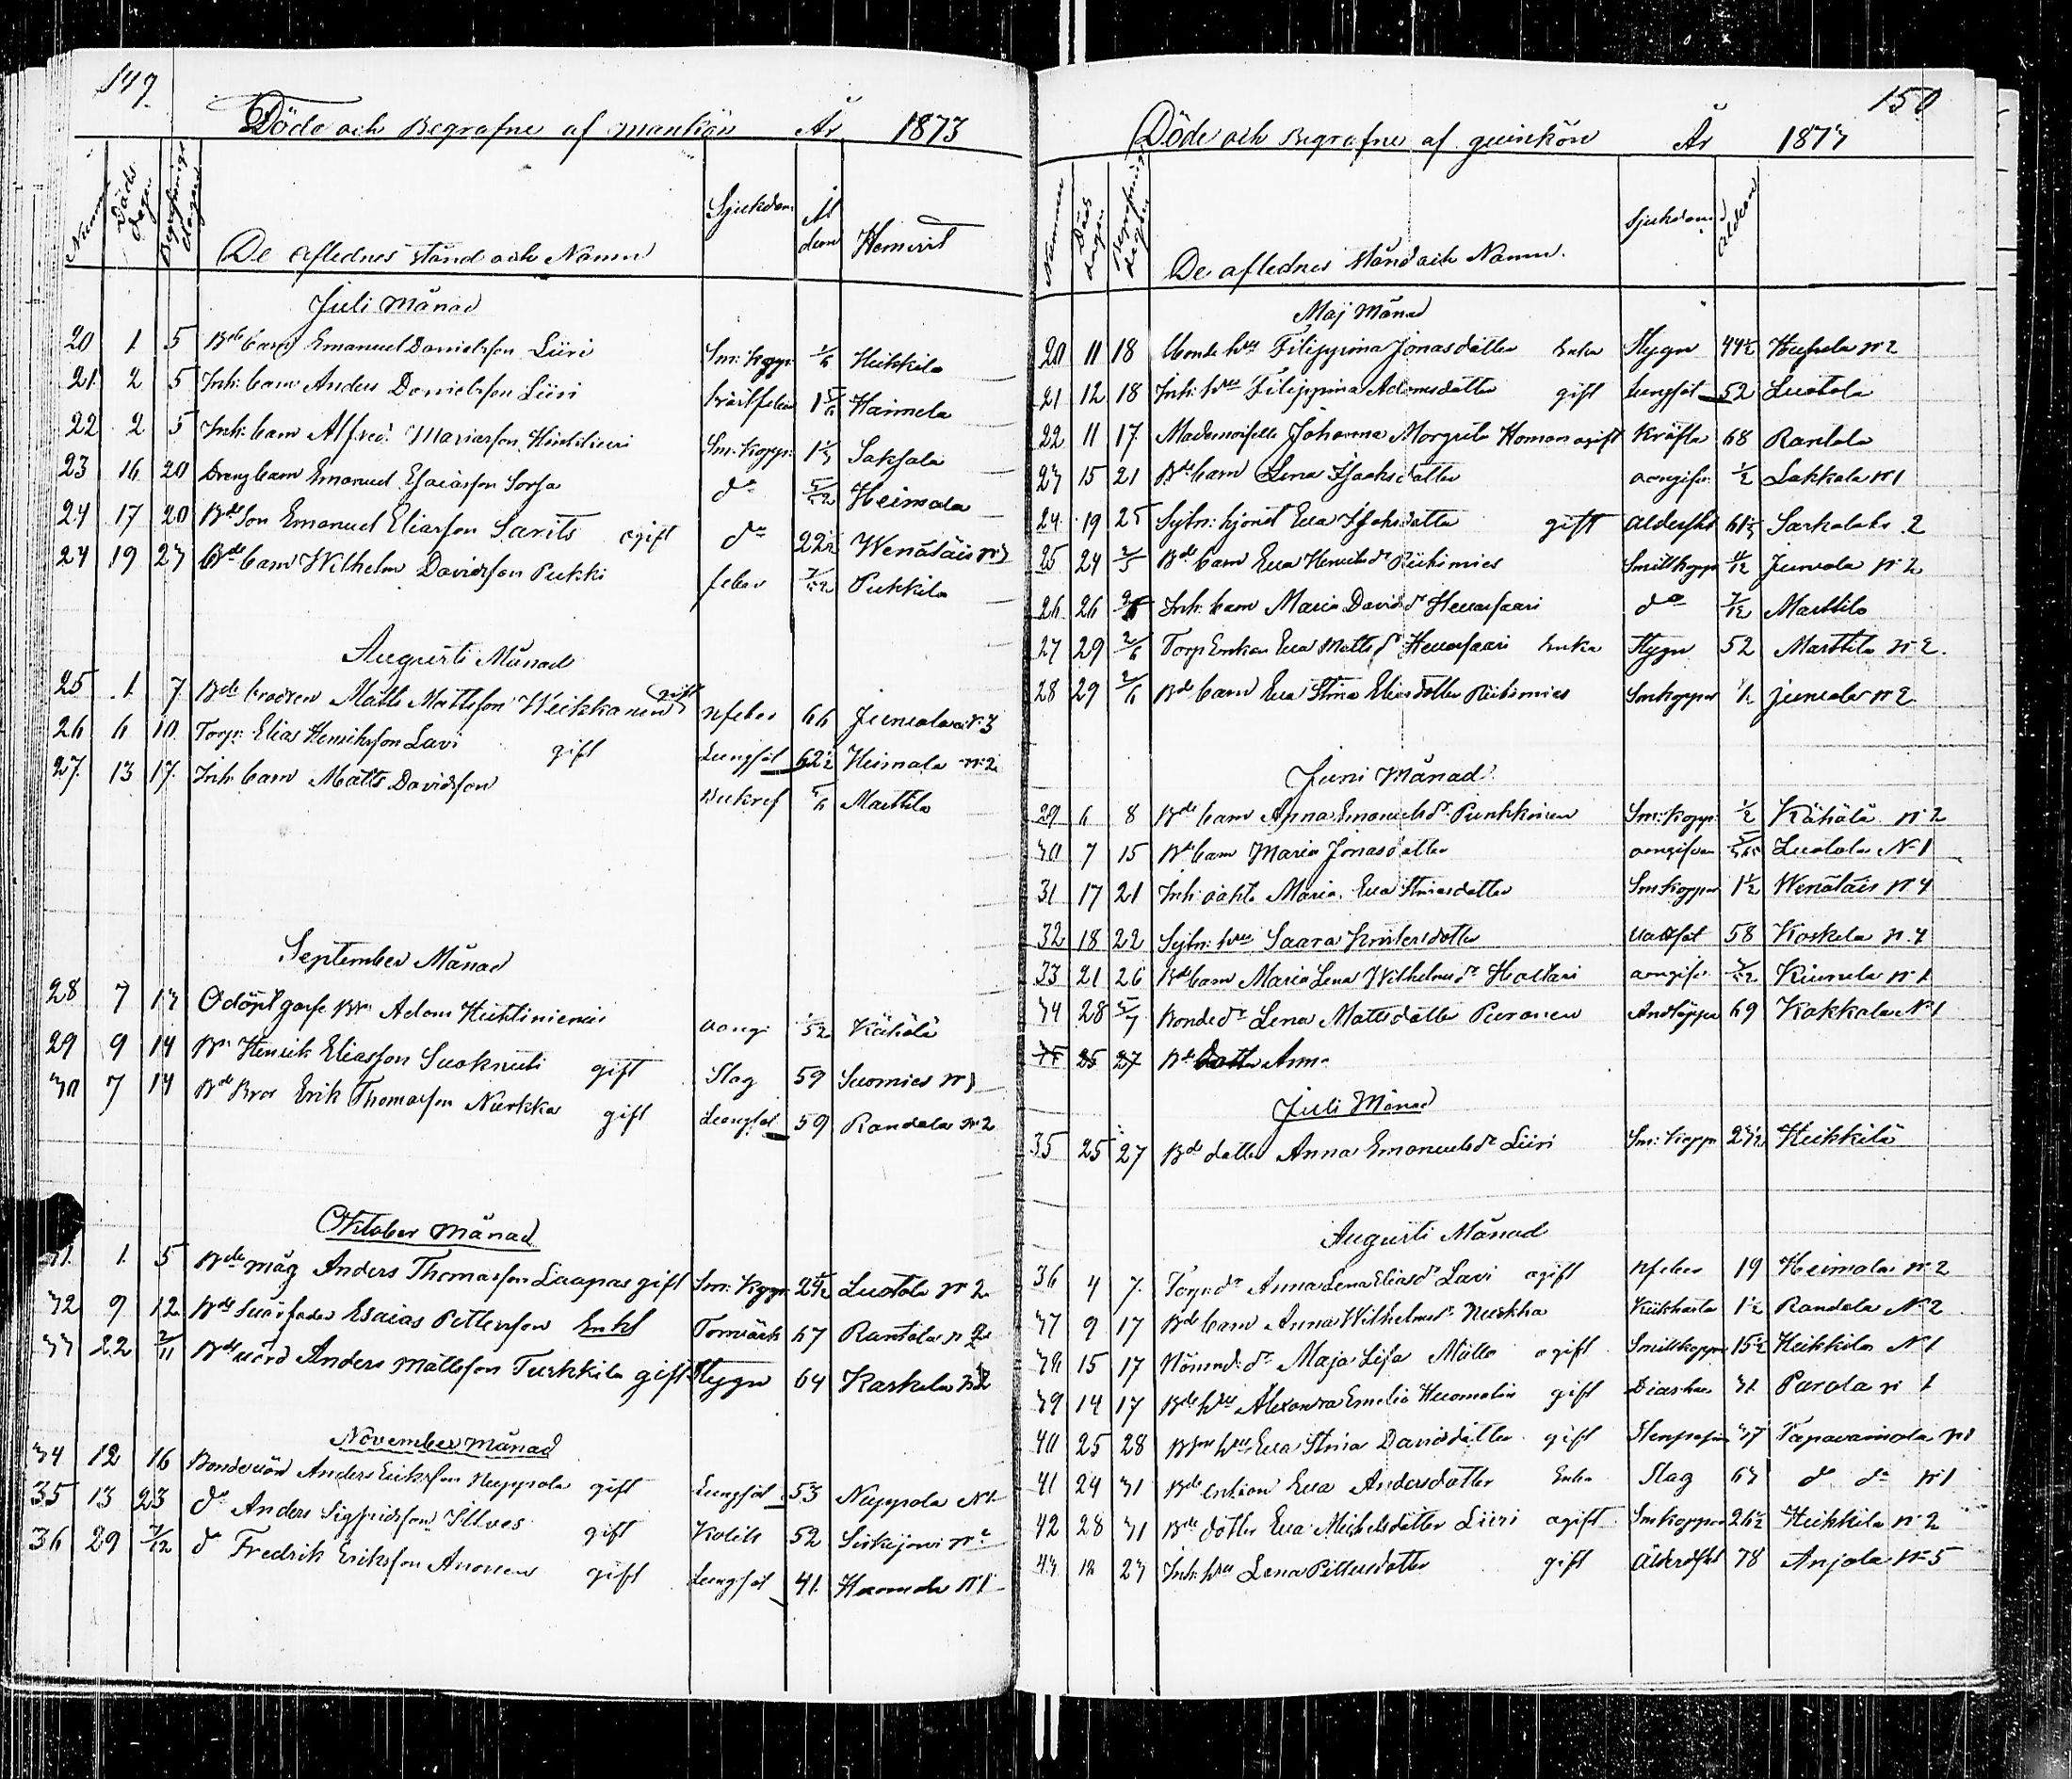 149.
Döde och Begrafne af mankön År 1873
Nummer Döds dagen Begrafnings dagen De aflednes stånd och Namn Sjukdom Ål dern Hemvist
Juli Månad
20 1 5 Bde barn Emanuel Danielsson Liiri Sm: Kopp: 1/6 Heikkila
21 2 5 Inh: barn Anders Danielsson Liiri Haimela
22 2 5 Inh: barn Alfred Mariasson Sm: Kopp: Saksala
23 16 20 Drengbarn Emanuel Esaiasson Sorsa do Heimala
24 17 20 Bde Son Emanuel Eliasson Sarits ogift do 22½ Wenätäis
24 19 23 Bde barn Wilhelm Davidsson Pukki feber Pukkila
Augusti Månad
25 1 7 Bde brodren Matts Mattsson Weikkanen gift nfeber 66 Junvala nr 3
26 6 10 Torp: Elias Henriksson Lavi gift Lungsot 62½ Heimala nr 2
27. 13 17. Inh: barn Matts Davidsson Marttila
September Månad
28 7 13 Odöpt Adam aangi: 1/52 Kähölä
29 9 14 Bn Henrik Eliasson Suoknuti gift Slag 59 Suomies nr 3
30 7 14 Bde Bror Erik Thomasson Nurkka gift Lungsot 59 Randala nr 2
Oktober Månad
31. 1. 5 Bde måg Anders Thomasson Laapas gift Sm: Kopp: Luotola nr 2
32 9 12 Bde Svärfader Esaias Pettersson Enkl Torrvärk 67 Rantala n 2
33 22 2/11 Bde värd Anders Mattsson Turkkila gift Stygn 64 Kaskela nr 2
November månad
34 12 16 Bondevärd Anders Eriksson Nuppola gift Lungsot 53 Nuppola N1
35 13 23 do Anders Sigfridsson Illves gift Kolik 52 nr 2
36 29 3/12 d Fredrik Eriksson Anonen gift Lungsot 41. nr 1
150
Döde och Begrafne af quinkön År 1873
Nummer Döds dagen Begrafnings dagen De aflednes Stånd och Namn. Sjukdom Åldern
Maj Månad
20 11 18 Bonde hru Filippina Jonasdotter Enka Stygn 44½ nr 2
21 12 18 Inh: hru Filippina Adamsdotter gift Lungsot 52 Luotola
22 11 17 Mademoiselle Johanna Margreta Homan ogift Kräfta 68 Rantala
23 15 21 Bde barn Lena Isaksdotter aangifv: ½ Lakkala nr 1
24. 19 25 Sytn: hjonet Eva Isaksdotter gift Alderdht 61½ Sarkalaks 2
25 24 2/5 Bde barn Eva Henriksdr Riihimies Smittkopp 4/12 Junvala nr 2
26 26 Inh: barn Maria Davidsdr Hevossaari do 7/12 Marttila
27 29 2/6 Torp Enkan Eva Mattsdr Hevossaari Enka Stygn 52 Marttila nr 2.
28 29 2/6 Bde barn Eva Stina Eliasdotter Riihimies Smkoppor ½ Junvala nr 2
Juni Månad.
29 6 8 Bde barn Anna Emanuelsdr Punkkinen Sm: Kopp: ½ Kähölä nr 2
30 7 15 Bde barn Maria Jonasdotter aangifven Luotola N 1
31 17 21 Inh: oäkta Maria Eva Stinasdotter Smkoppor 1½ Wenätäis nr 4
32 18 22 Sytn: hru Saara Kristersdotter Vattsot 58 Koskela nr. 4
33 21 26 Bde barn Maria Lena Wilhelmsdr Haltari aangifv: 3/52 nr 1
34 28 5/7 Bondedr Lena Mattsdotter Puronen Andtäppa 69 Kakkola N 1
35 25 27 Bde Dotter Anna
Juli Månad
35 25 27 Bde dotter Anna Emanuelsdr Liiri Sm: Kopp: 23½ Heikkilä
Augusti Månad
36 4 7. Torpdr Anna Lena Eliasdr Lavi ogift nfeber 19 Heimala nr 2
37 9 17 Bde barn Anna Wilhelmsdr Nurkka Kikhosta 1½ Randala N 2
38 15 17 Nämnd: dr Maja Lisa Mattsdr ogift Smittkoppor 15½ Heikkila N 1
39 14 17 Bde hru Alexandra Emelia Huomolin gift 31. Parola n 1
40 25 28 Bde hru Eva Stina Davidsdotter gift 37 Tapavainola nr 1
41 24 31 Bde enkan Eva Andersdotter Enka Slag 63 d do nr 1
42 28 31 Bde dotter Eva Michelsdotter Liiri ogift Smkoppor 26½ Heikkila nr 2
43 18 23 Inh: hru Lena Pettersdotter gift Alderdht 78 Anjala nr 5